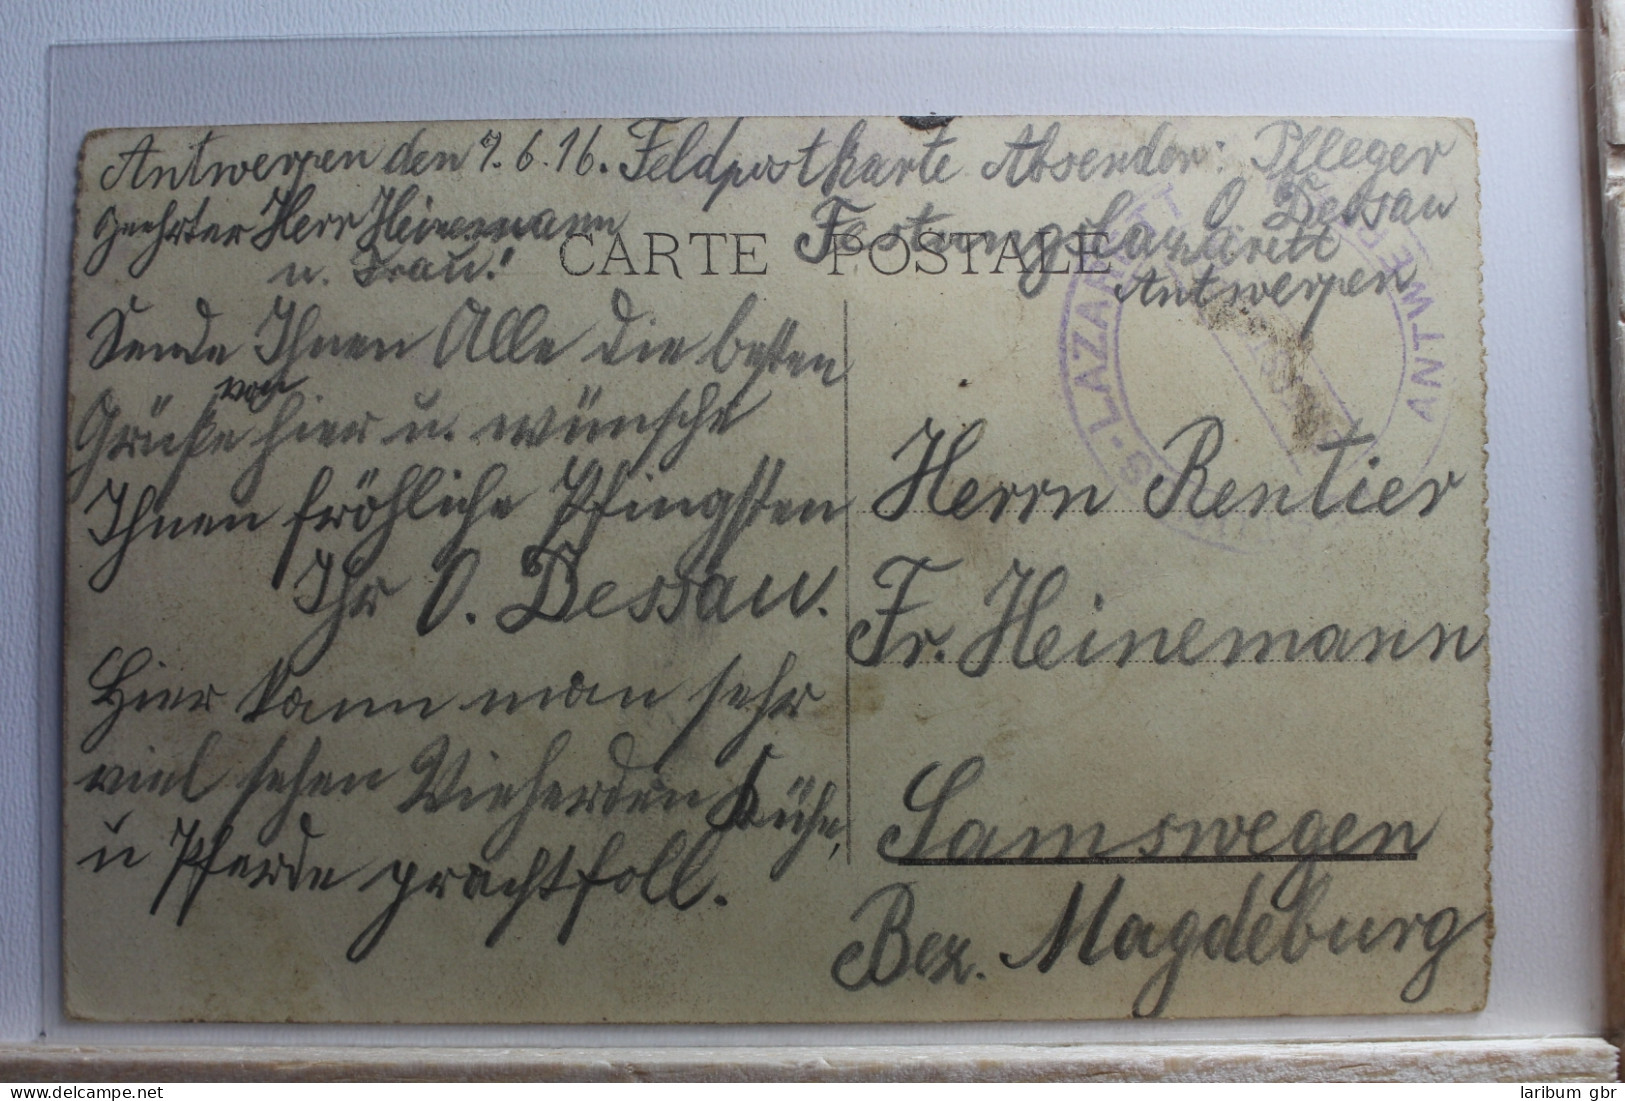 Antwerpen den 9.6.16. Feldpostkarte Absender: Pfleger
O. Dessau
Festungslazarett
Antwerpen
Geehrter Herr Heinemann
u. Frau!
CARTE POSTALE
Sende Ihnen Alle die besten
Grüße von hier u. wünsche
Ihnen fröhliche Pfingsten
Ihr O. Dessau.
Hier kann man sehr
viel sehen Vieherden Kühe,
u Pferde prachtfoll.
S-LAZARETT
ANTWERPEN
Herrn Rentier
Fr. Heinemann
Samswegen
Bez. Magdeburg
laribum gbr